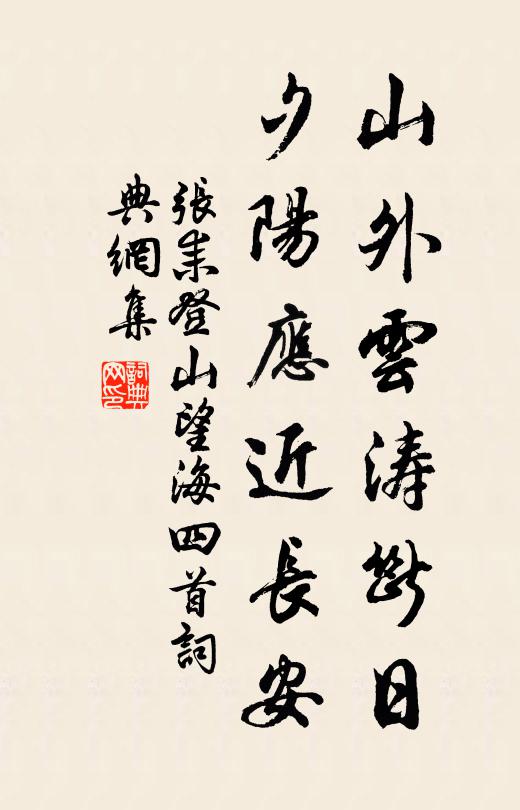 山外雲濤斷日
夕陽應近長安
張耒登山望海四首詞
典網集
詞典網印